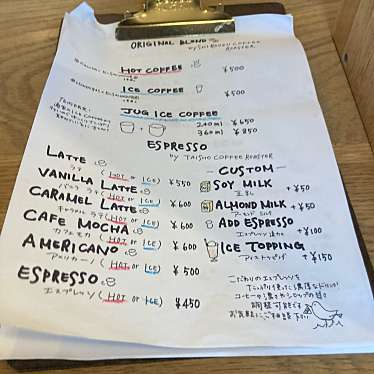 ORIGINAL BLEND
COFFEE ROASTER
HOT COFFEE ¥500
ICE COFFEE ¥500
JUG ICE COFFEE
240ml ¥650
360ml ¥850
ESPRESSO
by TAISHO COFFEE ROASTER
LATTE (HOT or ICE) ¥550
ラテ
VANILLA LATTE (HOT or ICE) ¥600
バニラ ラテ
CARAMEL LATTE (HOT or ICE) ¥600
キャラメル ラテ
CAFE MOCHA (HOT or ICE) ¥600
カフェモカ
AMERICANO (HOT or ICE) ¥500
アメリカーノ
ESPRESSO (HOT or ICE) ¥450
エスプレッソ
CUSTOM
SOY MILK +¥50
豆乳
ALMOND MILK +¥50
アーモンド ミルク
ADD ESPRESSO +¥100
エスプレッソ追加
ICE TOPPING +¥150
アイストッピング
こだわりのエスプレッソを
たっぷり使った濃厚なドリンク!
コーヒーの濃さやシロップの甘さ
調整可能です